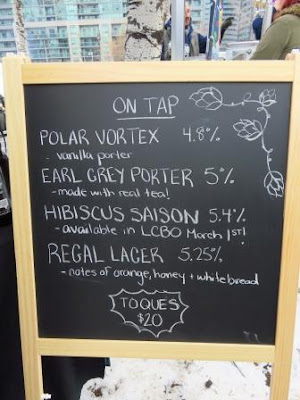 ON TAP
POLAR VORTEX 4.8%
- vanilla porter
EARL GREY PORTER 5%
- made with real tea!
HIBISCUS SAISON 5.4%
- available in LCBO March 1st!
REGAL LAGER 5.25%
- notes of orange, honey + white bread
TOQUES
$20